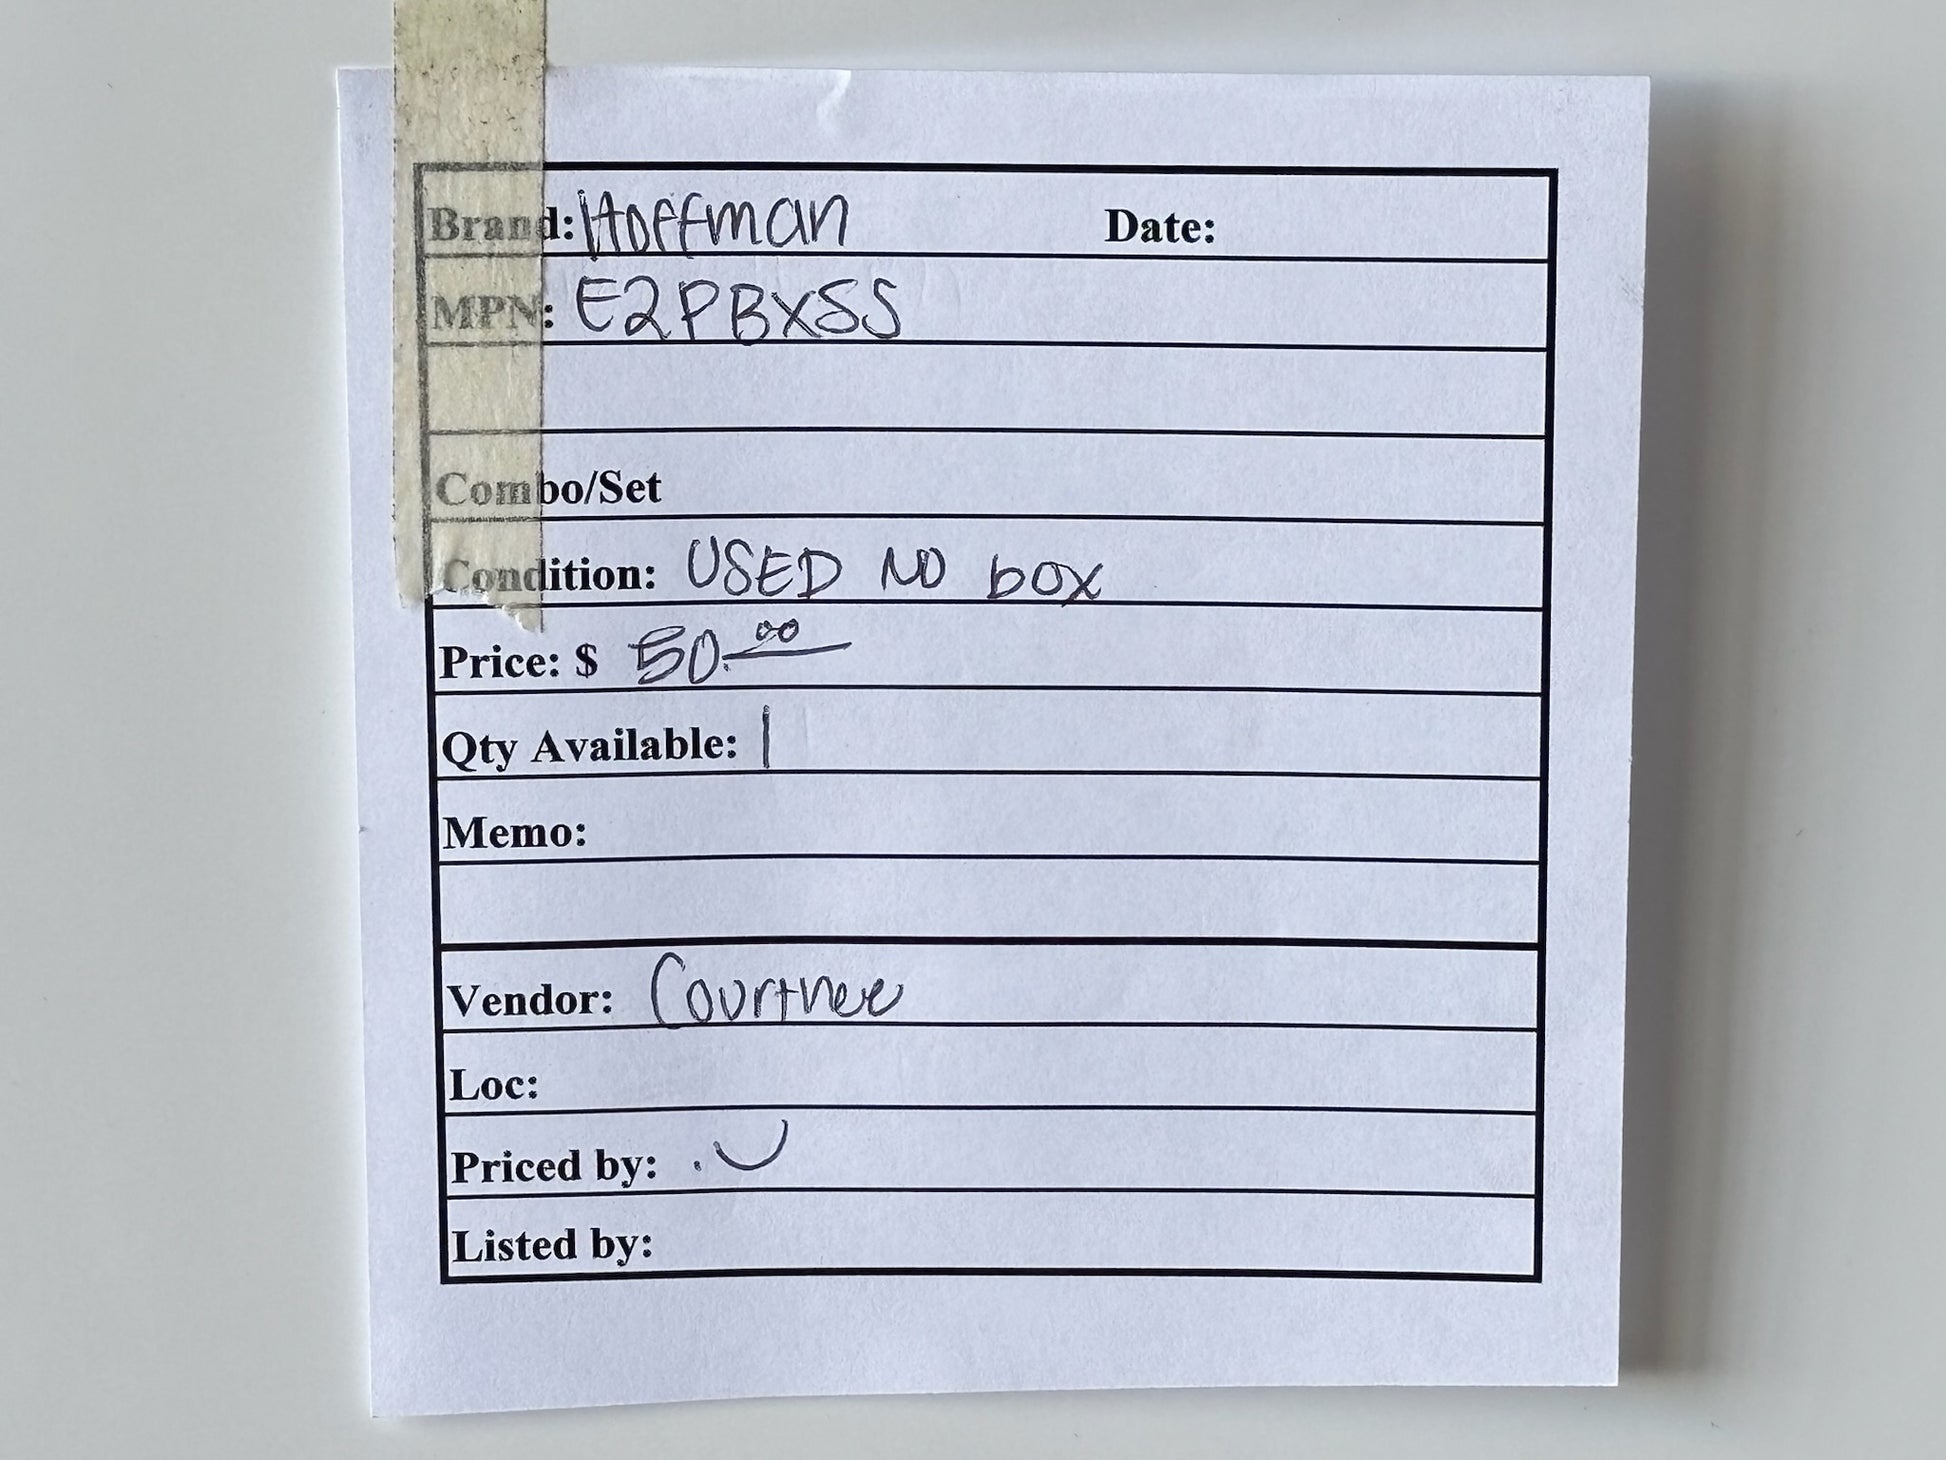 Brand: Hoffman Date:
MPN: E2PBXSS
Combo/Set
Condition: USED NO box
Price: $ 50.00
Qty Available: 1
Memo:
Vendor: Courtnee
Loc:
Priced by:
Listed by: